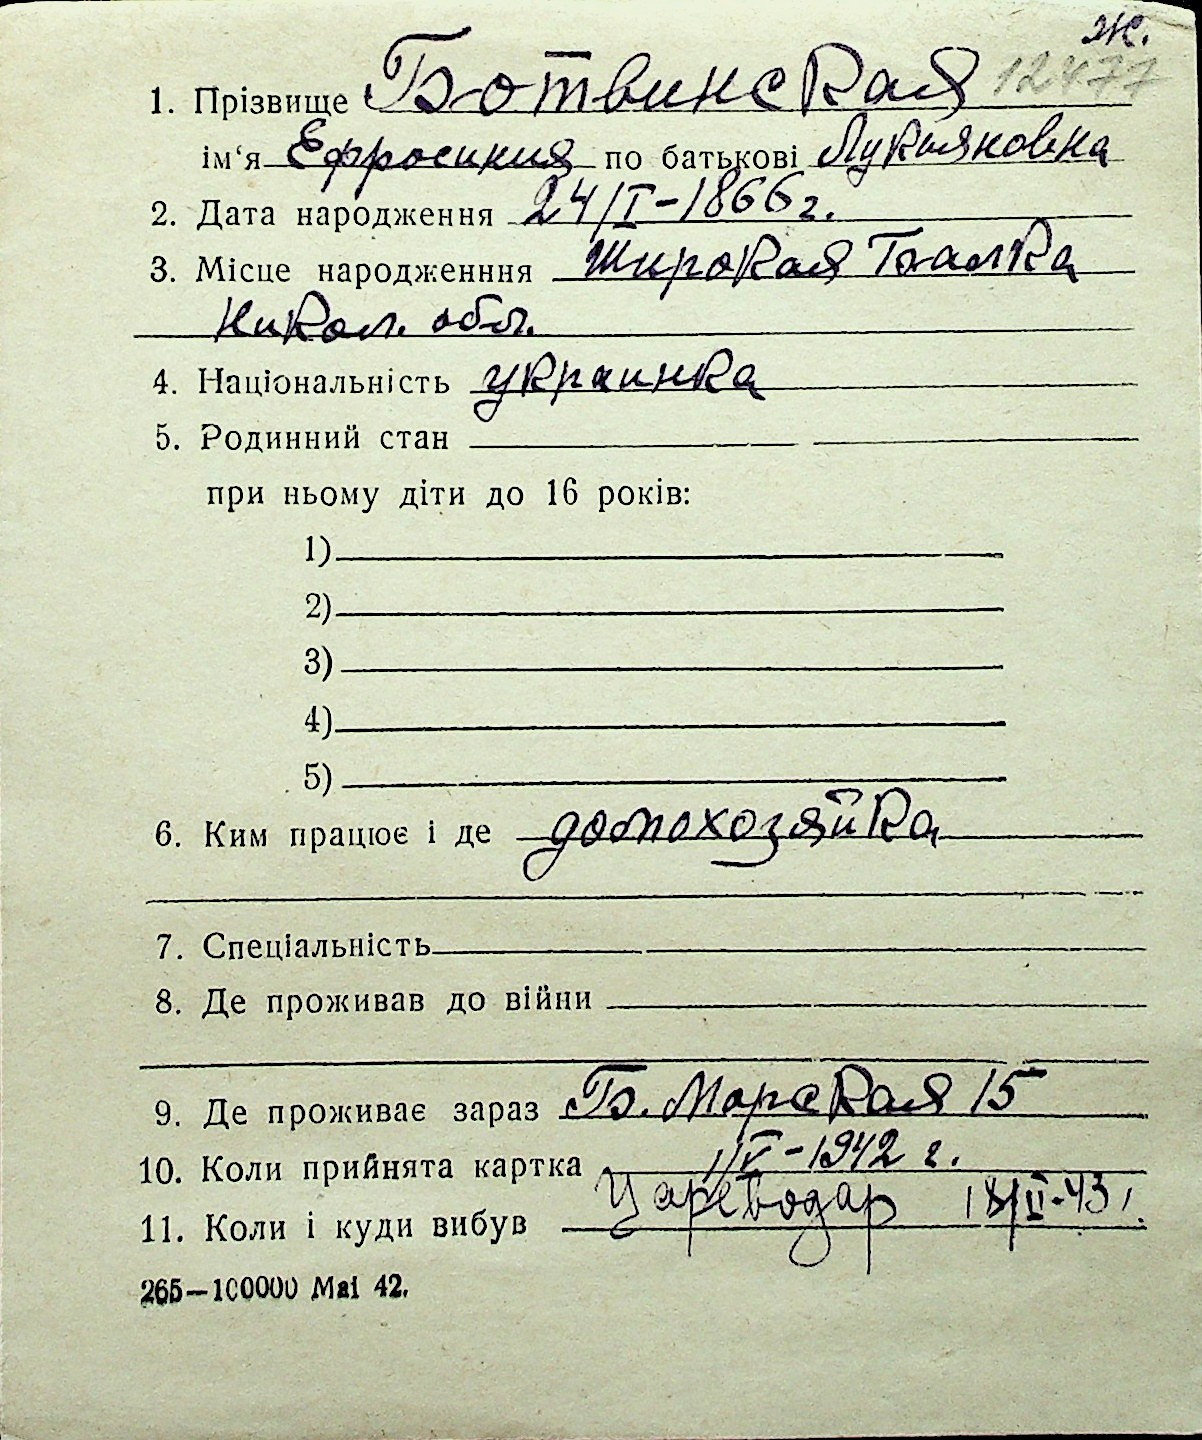 ж.
1. Прізвище Ботвинская 12477
ім‘я Ефросиния по батькові Лукьяновна
2. Дата народження 24/I-1866 г.
3. Місце народженння Широкая Балка
Никол. обл.
4. Національність украинка
5. Родинний стан
при ньому діти до 16 років:
1)
2)
3)
4)
5)
6. Ким працює і де домохозяйка
7. Спеціальність
8. Де проживав до війни
9. Де проживає зараз Б. Морская 15
10. Коли прийнята картка 1/V-1942 г.
11. Коли і куди вибув Цареводар 18/II-43
265—100000 Mai 42.